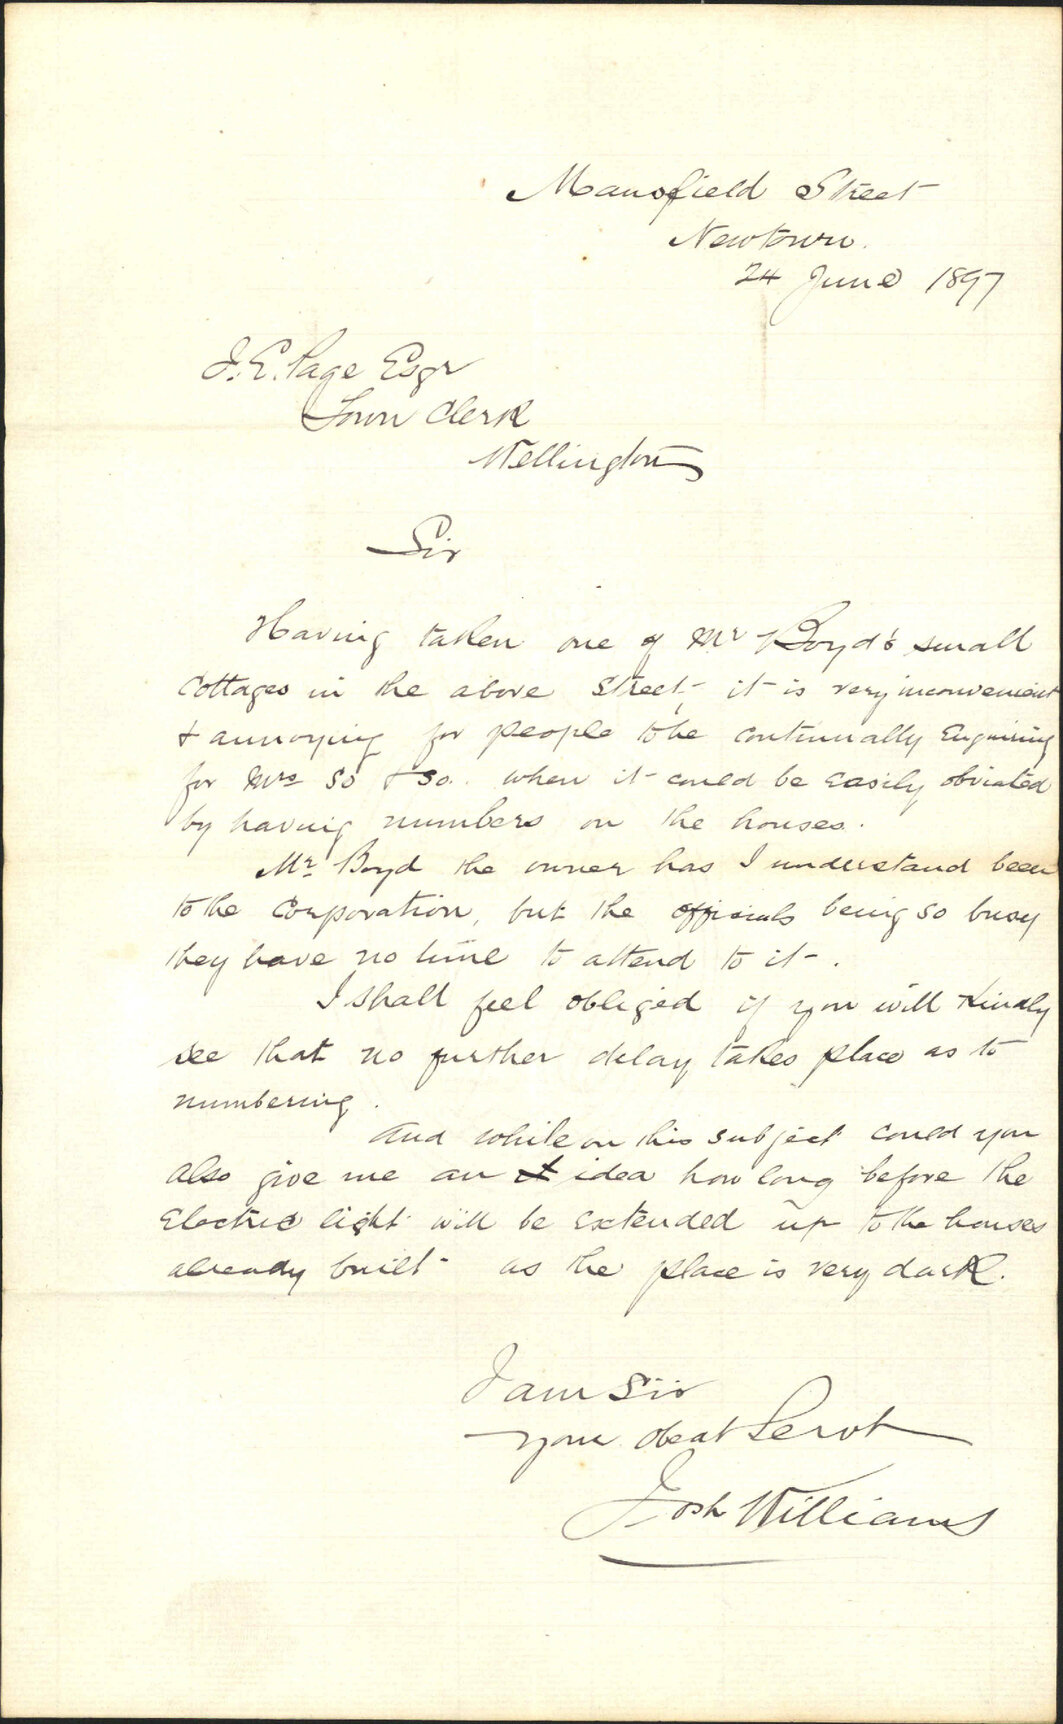 Mansfield Street
Newtown.
24 June 1897
J. E. Page Esqr
Town Clerk
Wellington
Sir
Having taken one of Mr Boyd's small
Cottages in the above Street, it is very inconvenient
& annoying for people to be continually Enquiring
for Mrs so & so. when it could be easily obviated
by having numbers on the houses.
Mr Boyd the owner has I understand been
to the Corporation, but the officials being so busy
they have no time to attend to it.
I shall feel obliged if you will Kindly
see that no further delay takes place as to
numbering.
And while on this subject could you
also give me an idea how long before the
Electric light will be extended up to the houses
already built as the place is very dark.
I am Sir
your obedt Servt
Josh Williams